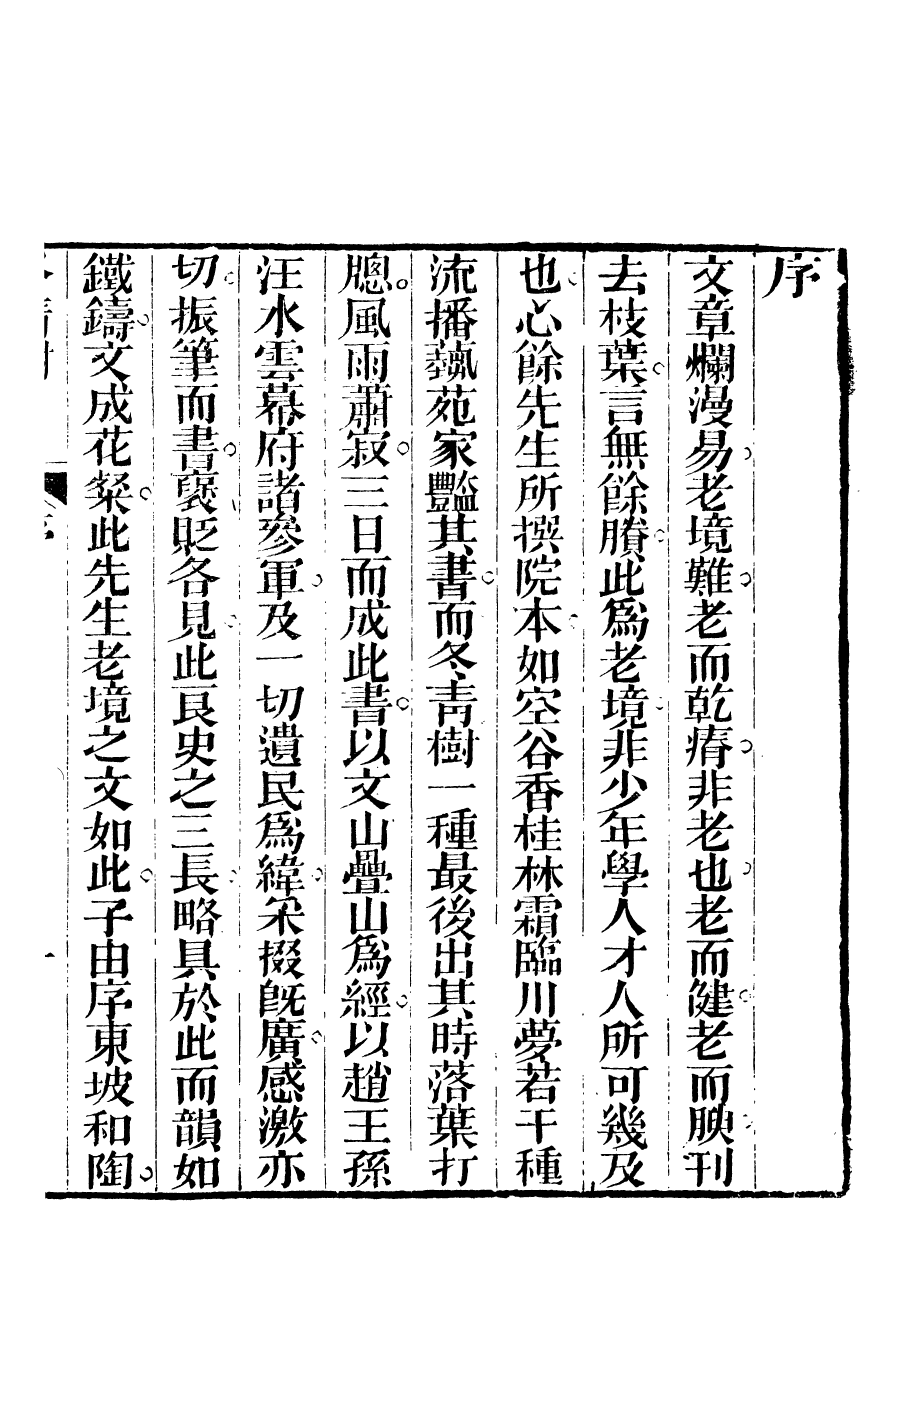 序
文章爛漫易老境難老而乾瘠非老也老而健老而腴刊
去枝葉言無餘賸此爲老境非少年學人才人所可幾及
也心餘先生所撰院本如空谷香桂林霜臨川夢若干種
流播藝苑家豔其書而冬青樹一種最後出其時落葉打
牕風雨蕭寂三日而成此書以文山疊山爲經以趙王孫
汪水雲幕府諸參軍及一切遺民爲緯采掇旣廣感激亦
切振筆而書襃貶各見此良史之三長略具於此而韻如
鐵鑄文成花粲此先生老境之文如此子由序東坡和陶